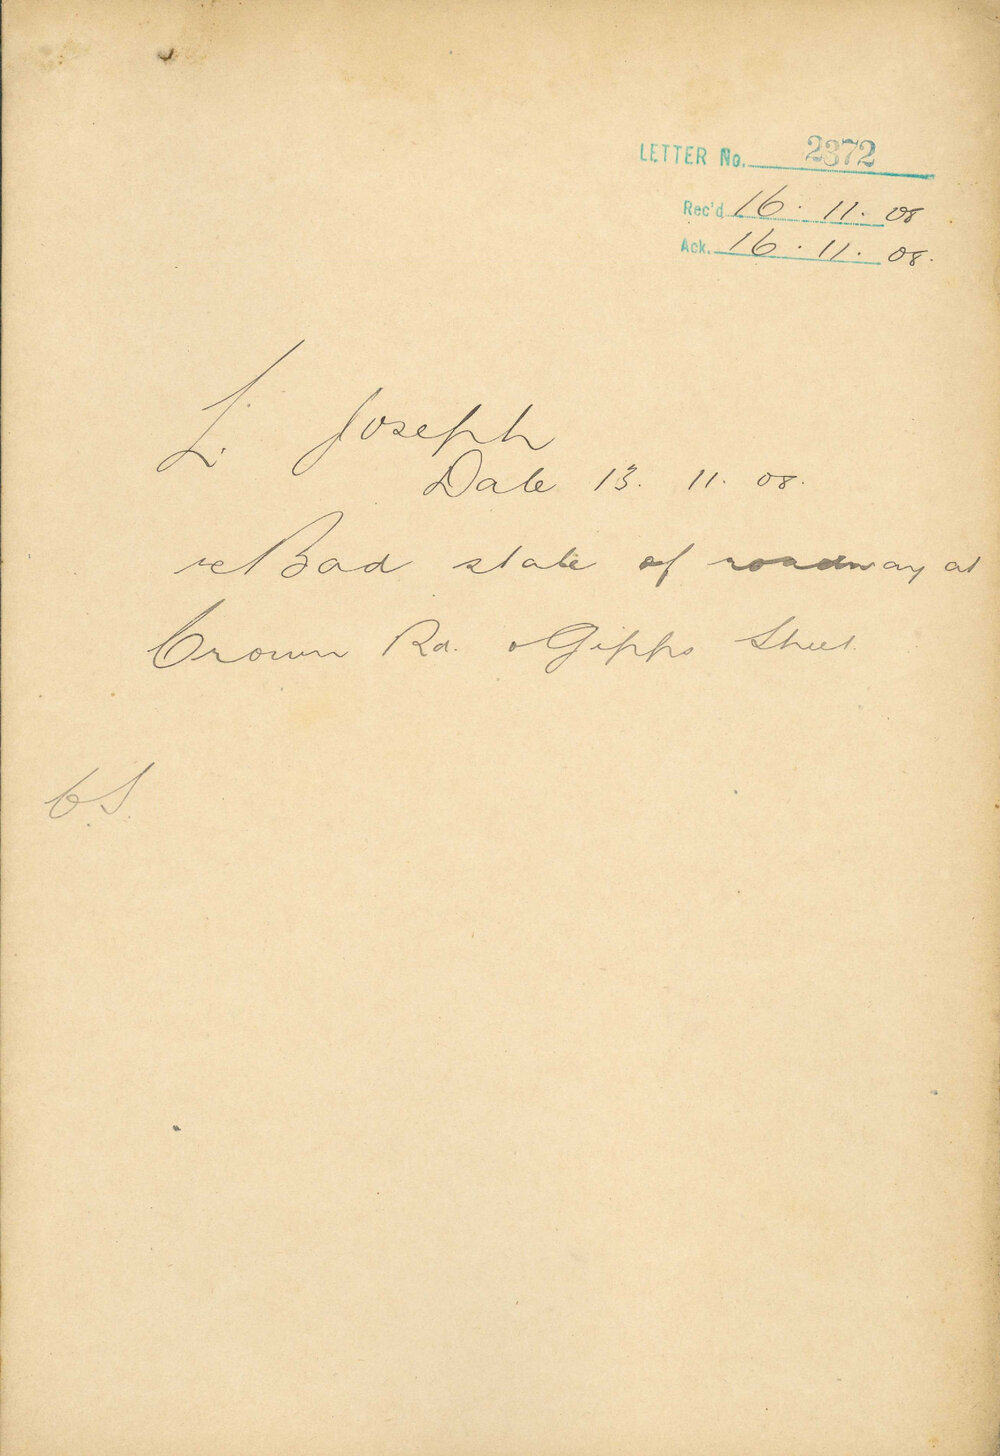 LETTER No. 2372
Rec'd 16. 11. 08
Ack. 16. 11. 08.
L. Joseph
Date 13. 11. 08.
re Bad state of roadway at
Crown Rd. & Gipps Street.
C.S.